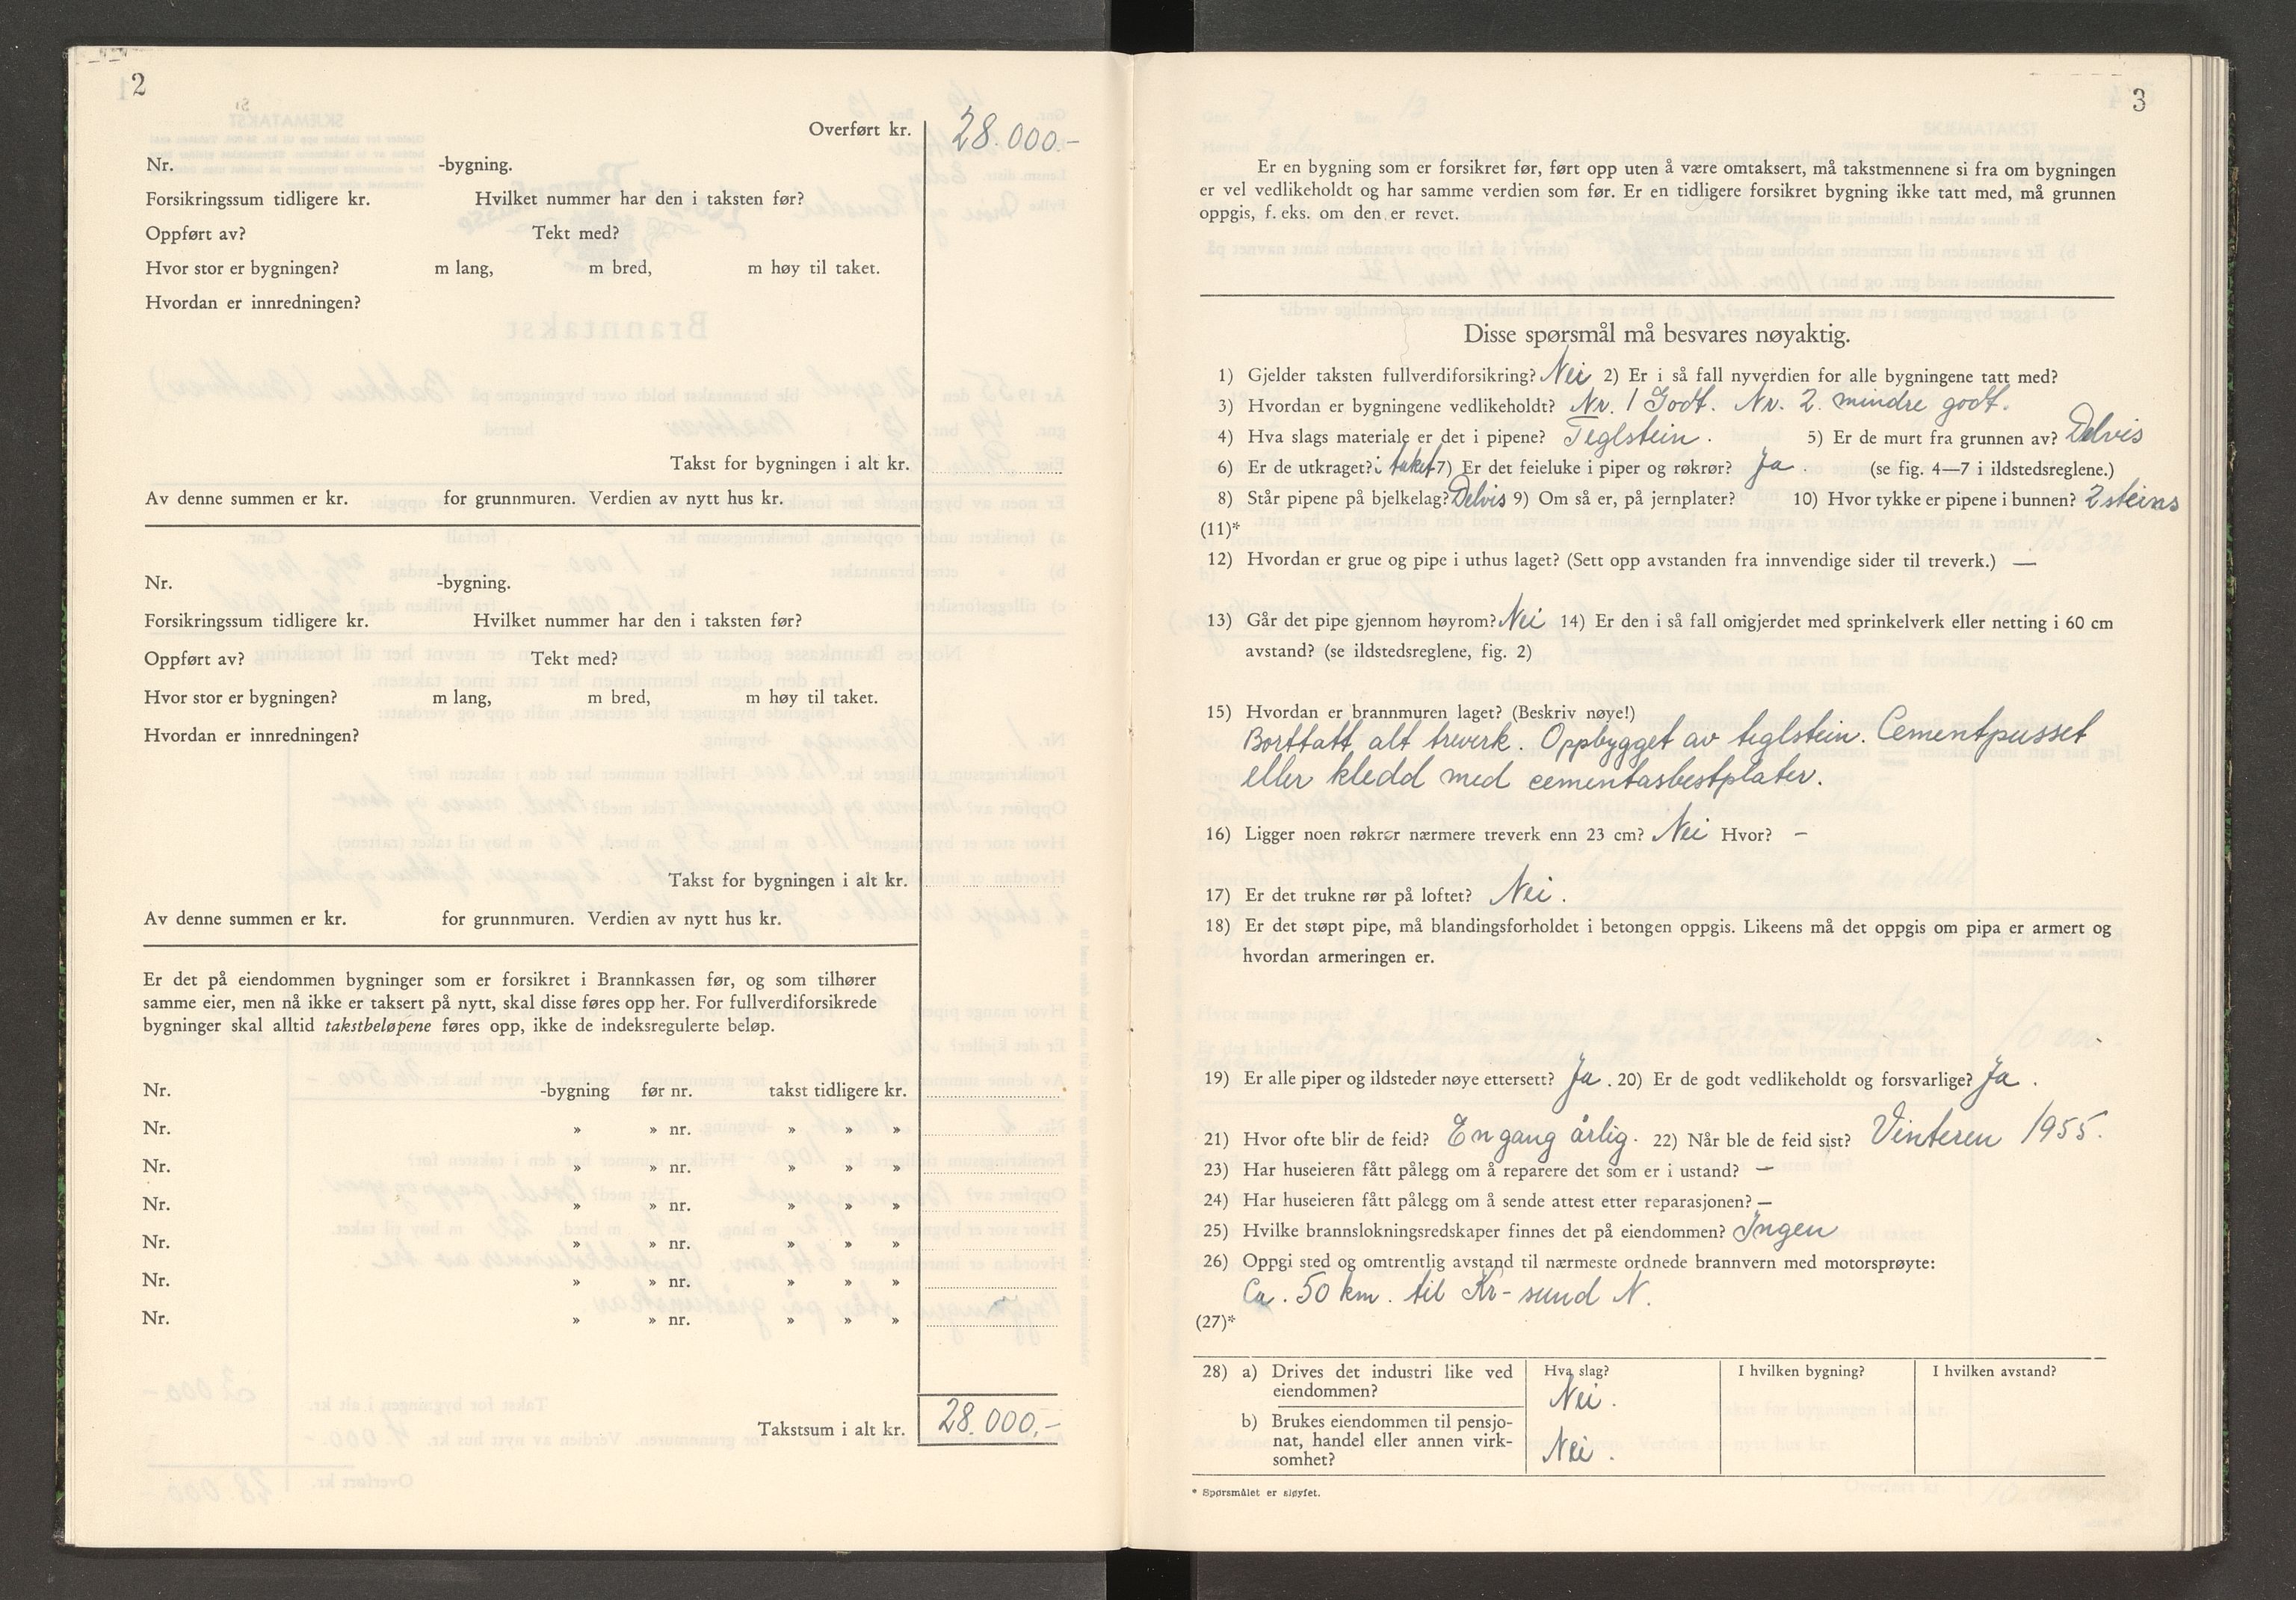 2
Overført kr. 28.000.-
Nr. -bygning.
Forsikringssum tidligere kr. Hvilket nummer har den i taksten før?
Oppført av? Tekt med?
Hvor stor er bygningen? m lang, m bred, m høy til taket.
Hvordan er innredningen?
Takst for bygningen i alt kr.
Av denne summen er kr. for grunnmuren. Verdien av nytt hus kr.
Nr. -bygning.
Forsikringssum tidligere kr. Hvilket nummer har den i taksten før?
Oppført av? Tekt med?
Hvor stor er bygningen? m lang, m bred, m høy til taket.
Hvordan er innredningen?
Takst for bygningen i alt kr.
Av denne summen er kr. for grunnmuren. Verdien av nytt hus kr.
Er det på eiendommen bygninger som er forsikret i Brannkassen før, og som tilhører
samme eier, men nå ikke er taksert på nytt, skal disse føres opp her. For fullverdiforsikrede
bygninger skal alltid takstbeløpene føres opp, ikke de indeksregulerte beløp.
Nr. -bygning før nr. takst tidligere kr.
Nr. » » nr. » » »
Nr. » » nr. » » »
Nr. » » nr. » » »
Nr. » » nr. » » »
Nr. » » nr. » » »
Nr. » » nr. » » »
Takstsum i alt kr. 28.000,-
3
Er en bygning som er forsikret før, ført opp uten å være omtaksert, må takstmennene si fra om bygningen
er vel vedlikeholdt og har samme verdien som før. Er en tidligere forsikret bygning ikke tatt med, må grunnen
oppgis, f. eks. om den er revet.
Disse spørsmål må besvares nøyaktig.
1) Gjelder taksten fullverdiforsikring? Nei 2) Er i så fall nyverdien for alle bygningene tatt med?
3) Hvordan er bygningene vedlikeholdt? Nr. 1 Godt. Nr. 2. mindre godt.
4) Hva slags materiale er det i pipene? Teglstein. 5) Er de murt fra grunnen av? Delvis
6) Er de utkraget? i taket 7) Er det feieluke i piper og røkrør? Ja. (se fig. 4—7 i ildstedsreglene.)
8) Står pipene på bjelkelag? Delvis 9) Om så er, på jernplater? 10) Hvor tykke er pipene i bunnen? 2 steins
(11)*
12) Hvordan er grue og pipe i uthus laget? (Sett opp avstanden fra innvendige sider til treverk.) —
13) Går det pipe gjennom høyrom? Nei 14) Er den i så fall omgjerdet med sprinkelverk eller netting i 60 cm
avstand? (se ildstedsreglene, fig. 2)
15) Hvordan er brannmuren laget? (Beskriv nøye!)
Borttatt alt treverk. Oppbygget av teglstein. Cementpusset
eller kledd med cementasbestplater.
16) Ligger noen røkrør nærmere treverk enn 23 cm? Nei Hvor? –
17) Er det trukne rør på loftet? Nei.
18) Er det støpt pipe, må blandingsforholdet i betongen oppgis. Likeens må det oppgis om pipa er armert og
hvordan armeringen er.
19) Er alle piper og ildsteder nøye ettersett? Ja. 20) Er de godt vedlikeholdt og forsvarlige? Ja.
21) Hvor ofte blir de feid? En gang årlig. 22) Når ble de feid sist? Vinteren 1955.
23) Har huseieren fått pålegg om å reparere det som er i ustand? –
24) Har huseieren fått pålegg om å sende attest etter reparasjonen? –
25) Hvilke brannslokningsredskaper finnes det på eiendommen? Ingen
26) Oppgi sted og omtrentlig avstand til nærmeste ordnede brannvern med motorsprøyte:
Ca. 50 km. til Kr-sund N.
(27)*
28) a) Drives det industri like ved Hva slag? I hvilken bygning? I hvilken avstand?
eiendommen? Nei.
b) Brukes eiendommen til pensjo-
nat, handel eller annen virk- Nei.
somhet?
* Spørsmålet er sløyfet.